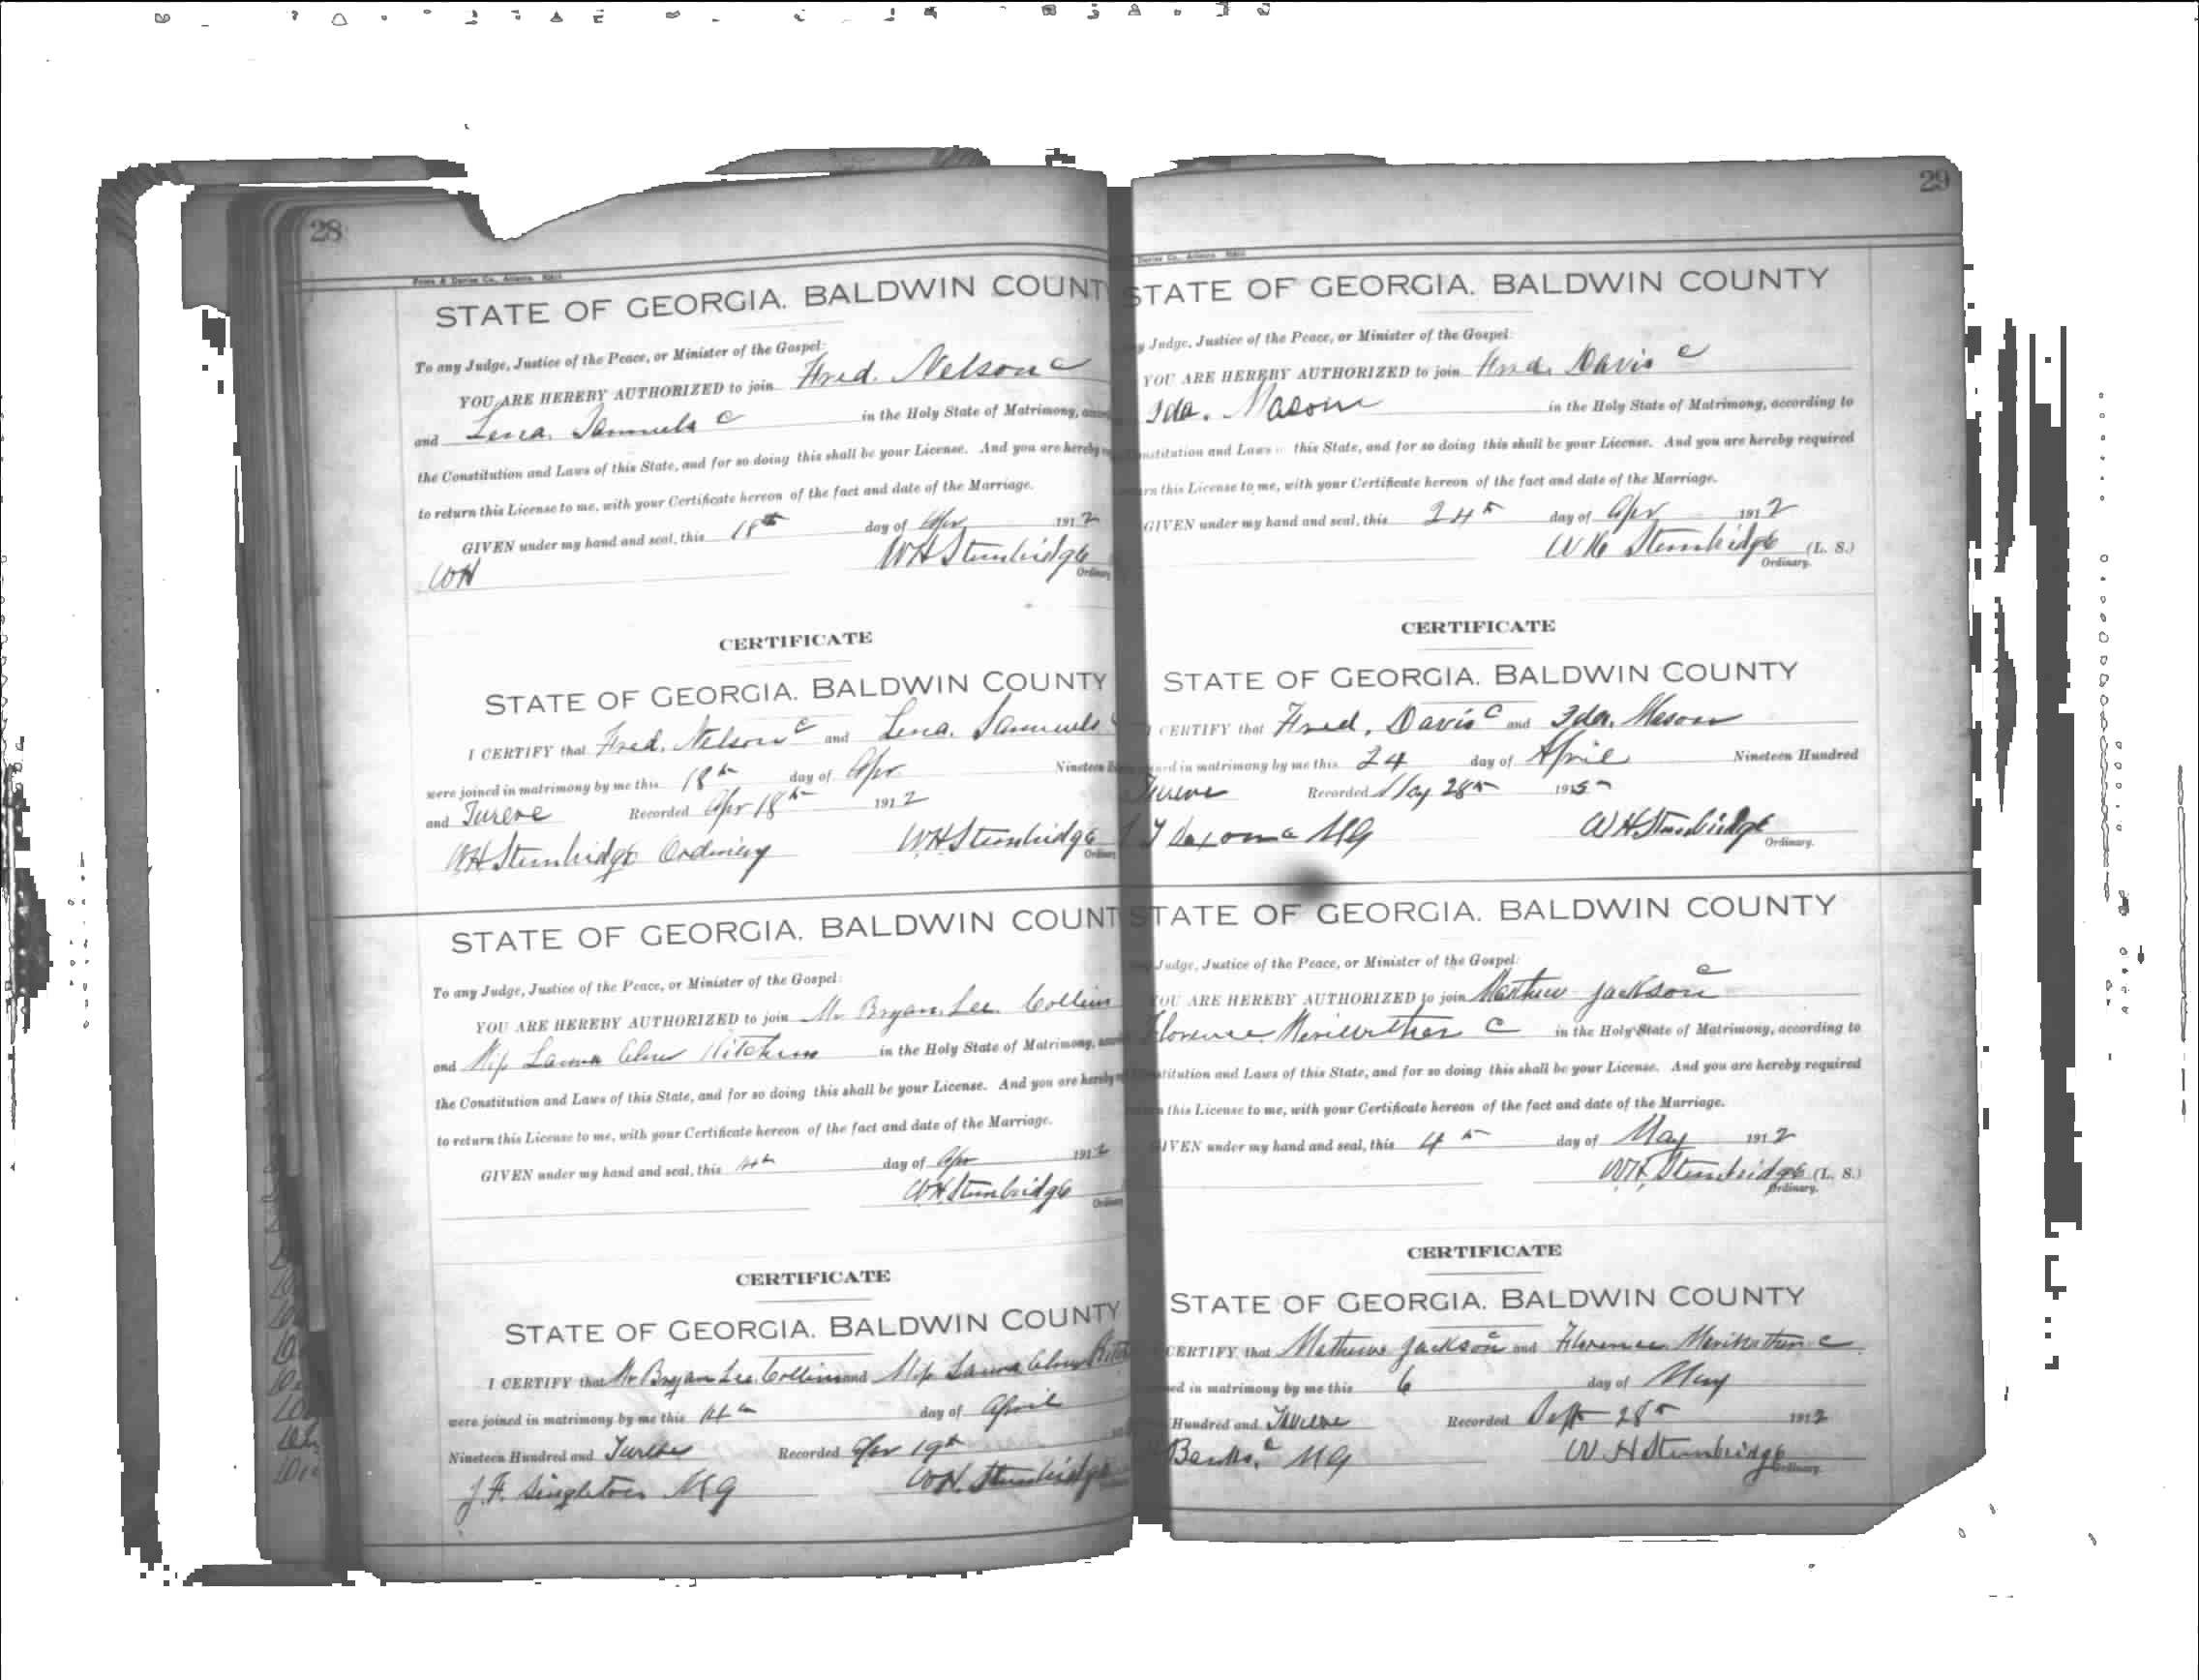 28
STATE OF GEORGIA. BALDWIN COUNT
To any Judge, Justice of the Peace, or Minister of the Gospel:
YOU ARE HEREBY AUTHORIZED to join Fred. Nelson c
and Lena. Samuels c in the Holy State of Matrimony,
the Constitution and Laws of this State, and for so doing this shall be your License. And you are hereby
to return this License to me, with your Certificate hereon of the fact and date of the Marriage.
GIVEN under my hand and seal, this 18th day of Apr 1912
WH WH Stembridge
Ordinary
CERTIFICATE
STATE OF GEORGIA. BALDWIN COUNTY
I CERTIFY that Fred. Nelson c and Lena. Samuels
were joined in matrimony by me this 18th day of Apr Nineteen
and Twelve Recorded Apr 18th 1912
WH Stembridge Ordinary WH Stembridge
STATE OF GEORGIA. BALDWIN COUNT
To any Judge, Justice of the Peace, or Minister of the Gospel:
YOU ARE HEREBY AUTHORIZED to join Mr Bryan. Lee. Collins
and Miss Laura in the Holy State of Matrimony,
the Constitution and Laws of this State, and for so doing this shall be your License. And you are hereby
to return this License to me, with your Certificate hereon of the fact and date of the Marriage.
GIVEN under my hand and seal, this day of Apr 1912
WH Stembridge
CERTIFICATE
STATE OF GEORGIA. BALDWIN COUNTY
I CERTIFY that Mr Bryan Lee. Collins and Miss Laura
were joined in matrimony by me this day of April
Nineteen Hundred and Twelve Recorded Apr 19th
J. F. Singleton MG WH. Stembridge
29
STATE OF GEORGIA. BALDWIN COUNTY
Judge, Justice of the Peace, or Minister of the Gospel:
YOU ARE HEREBY AUTHORIZED to join Fred. Davis c
Ida. Mason in the Holy State of Matrimony, according to
and Laws this State, and for so doing this shall be your License. And you are hereby required
this License to me, with your Certificate hereon of the fact and date of the Marriage.
GIVEN under my hand and seal, this 24th day of Apr 1912
WH Stembridge (L. S.)
Ordinary.
CERTIFICATE
STATE OF GEORGIA. BALDWIN COUNTY
CERTIFY that Fred. Davis c and Ida. Mason
in matrimony by me this 24 day of April Nineteen Hundred
Twelve Recorded May 28th 1915
MG WH Stembridge
Ordinary.
STATE OF GEORGIA. BALDWIN COUNTY
Judge, Justice of the Peace, or Minister of the Gospel:
YOU ARE HEREBY AUTHORIZED to join Mathew Jackson c
Florence Meriwether c in the Holy State of Matrimony, according to
and Laws of this State, and for so doing this shall be your License. And you are hereby required
this License to me, with your Certificate hereon of the fact and date of the Marriage.
GIVEN under my hand and seal, this 4th day of May 1912
WH Stembridge (L. S.)
Ordinary.
CERTIFICATE
STATE OF GEORGIA. BALDWIN COUNTY
CERTIFY that Mathew Jackson c and Florence Meriwether c
in matrimony by me this 6 day of May
Hundred and Twelve Recorded Sept 28th 1912
Banks, c MG W H Stembridge
Ordinary.